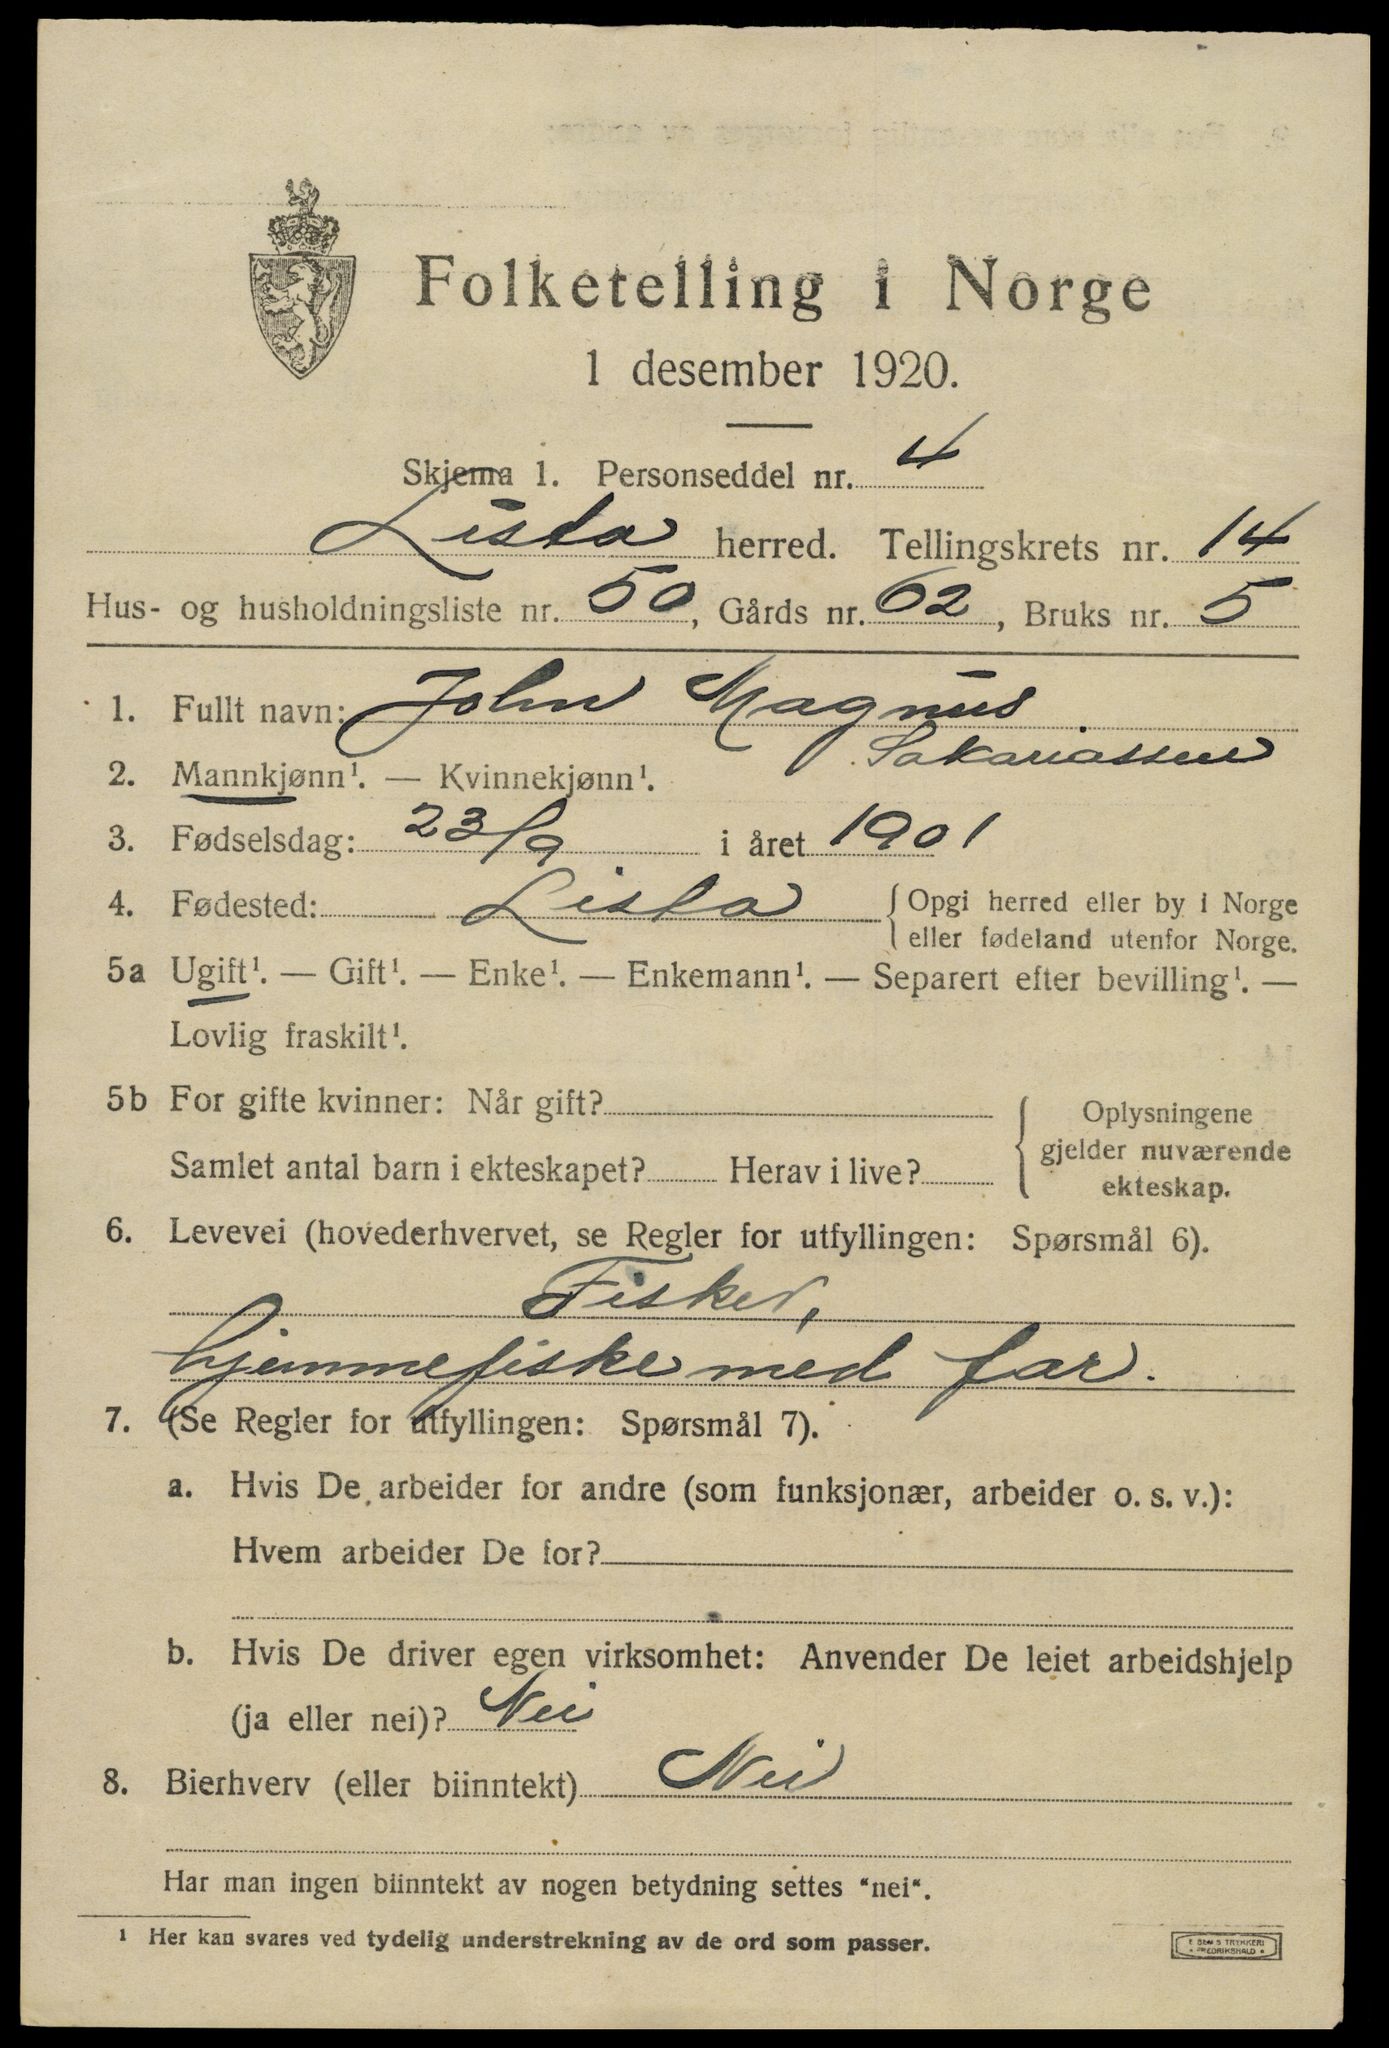 Folketelling i Norge
1 desember 1920.
Skjema 1. Personseddel nr. 4
Lista herred. Tellingskrets nr. 14
Hus- og husholdningsliste nr. 50, Gårds nr. 62, Bruks nr. 5
1. Fullt navn: John Magnus
Sakariassen
2. Mannkjønn¹. — Kvinnekjønn¹.
3. Fødselsdag: 23/9 i året 1901
4. Fødested: Lista { Opgi herred eller by i Norge
eller fødeland utenfor Norge.
5a Ugift¹. — Gift¹. — Enke¹. — Enkemann¹. — Separert efter bevilling¹. —
Lovlig fraskilt¹.
5b For gifte kvinner: Når gift? { Oplysningene
gjelder nuværende
Samlet antal barn i ekteskapet? Herav i live?
ekteskap.
6. Levevei (hovederhvervet, se Regler for utfyllingen: Spørsmål 6).
Fisker,
hjemmefiske med far.
7. (Se Regler for utfyllingen: Spørsmål 7).
a. Hvis De arbeider for andre (som funksjonær, arbeider o. s. v.):
Hvem arbeider De for?
b. Hvis De driver egen virksomhet: Anvender De leiet arbeidshjelp
(ja eller nei)? Nei
8. Bierhverv (eller biinntekt) Nei
Har man ingen biinntekt av nogen betydning settes "nei".
¹ Her kan svares ved tydelig understrekning av de ord som passer.
TRYKKERI
FREDRIKSHALD